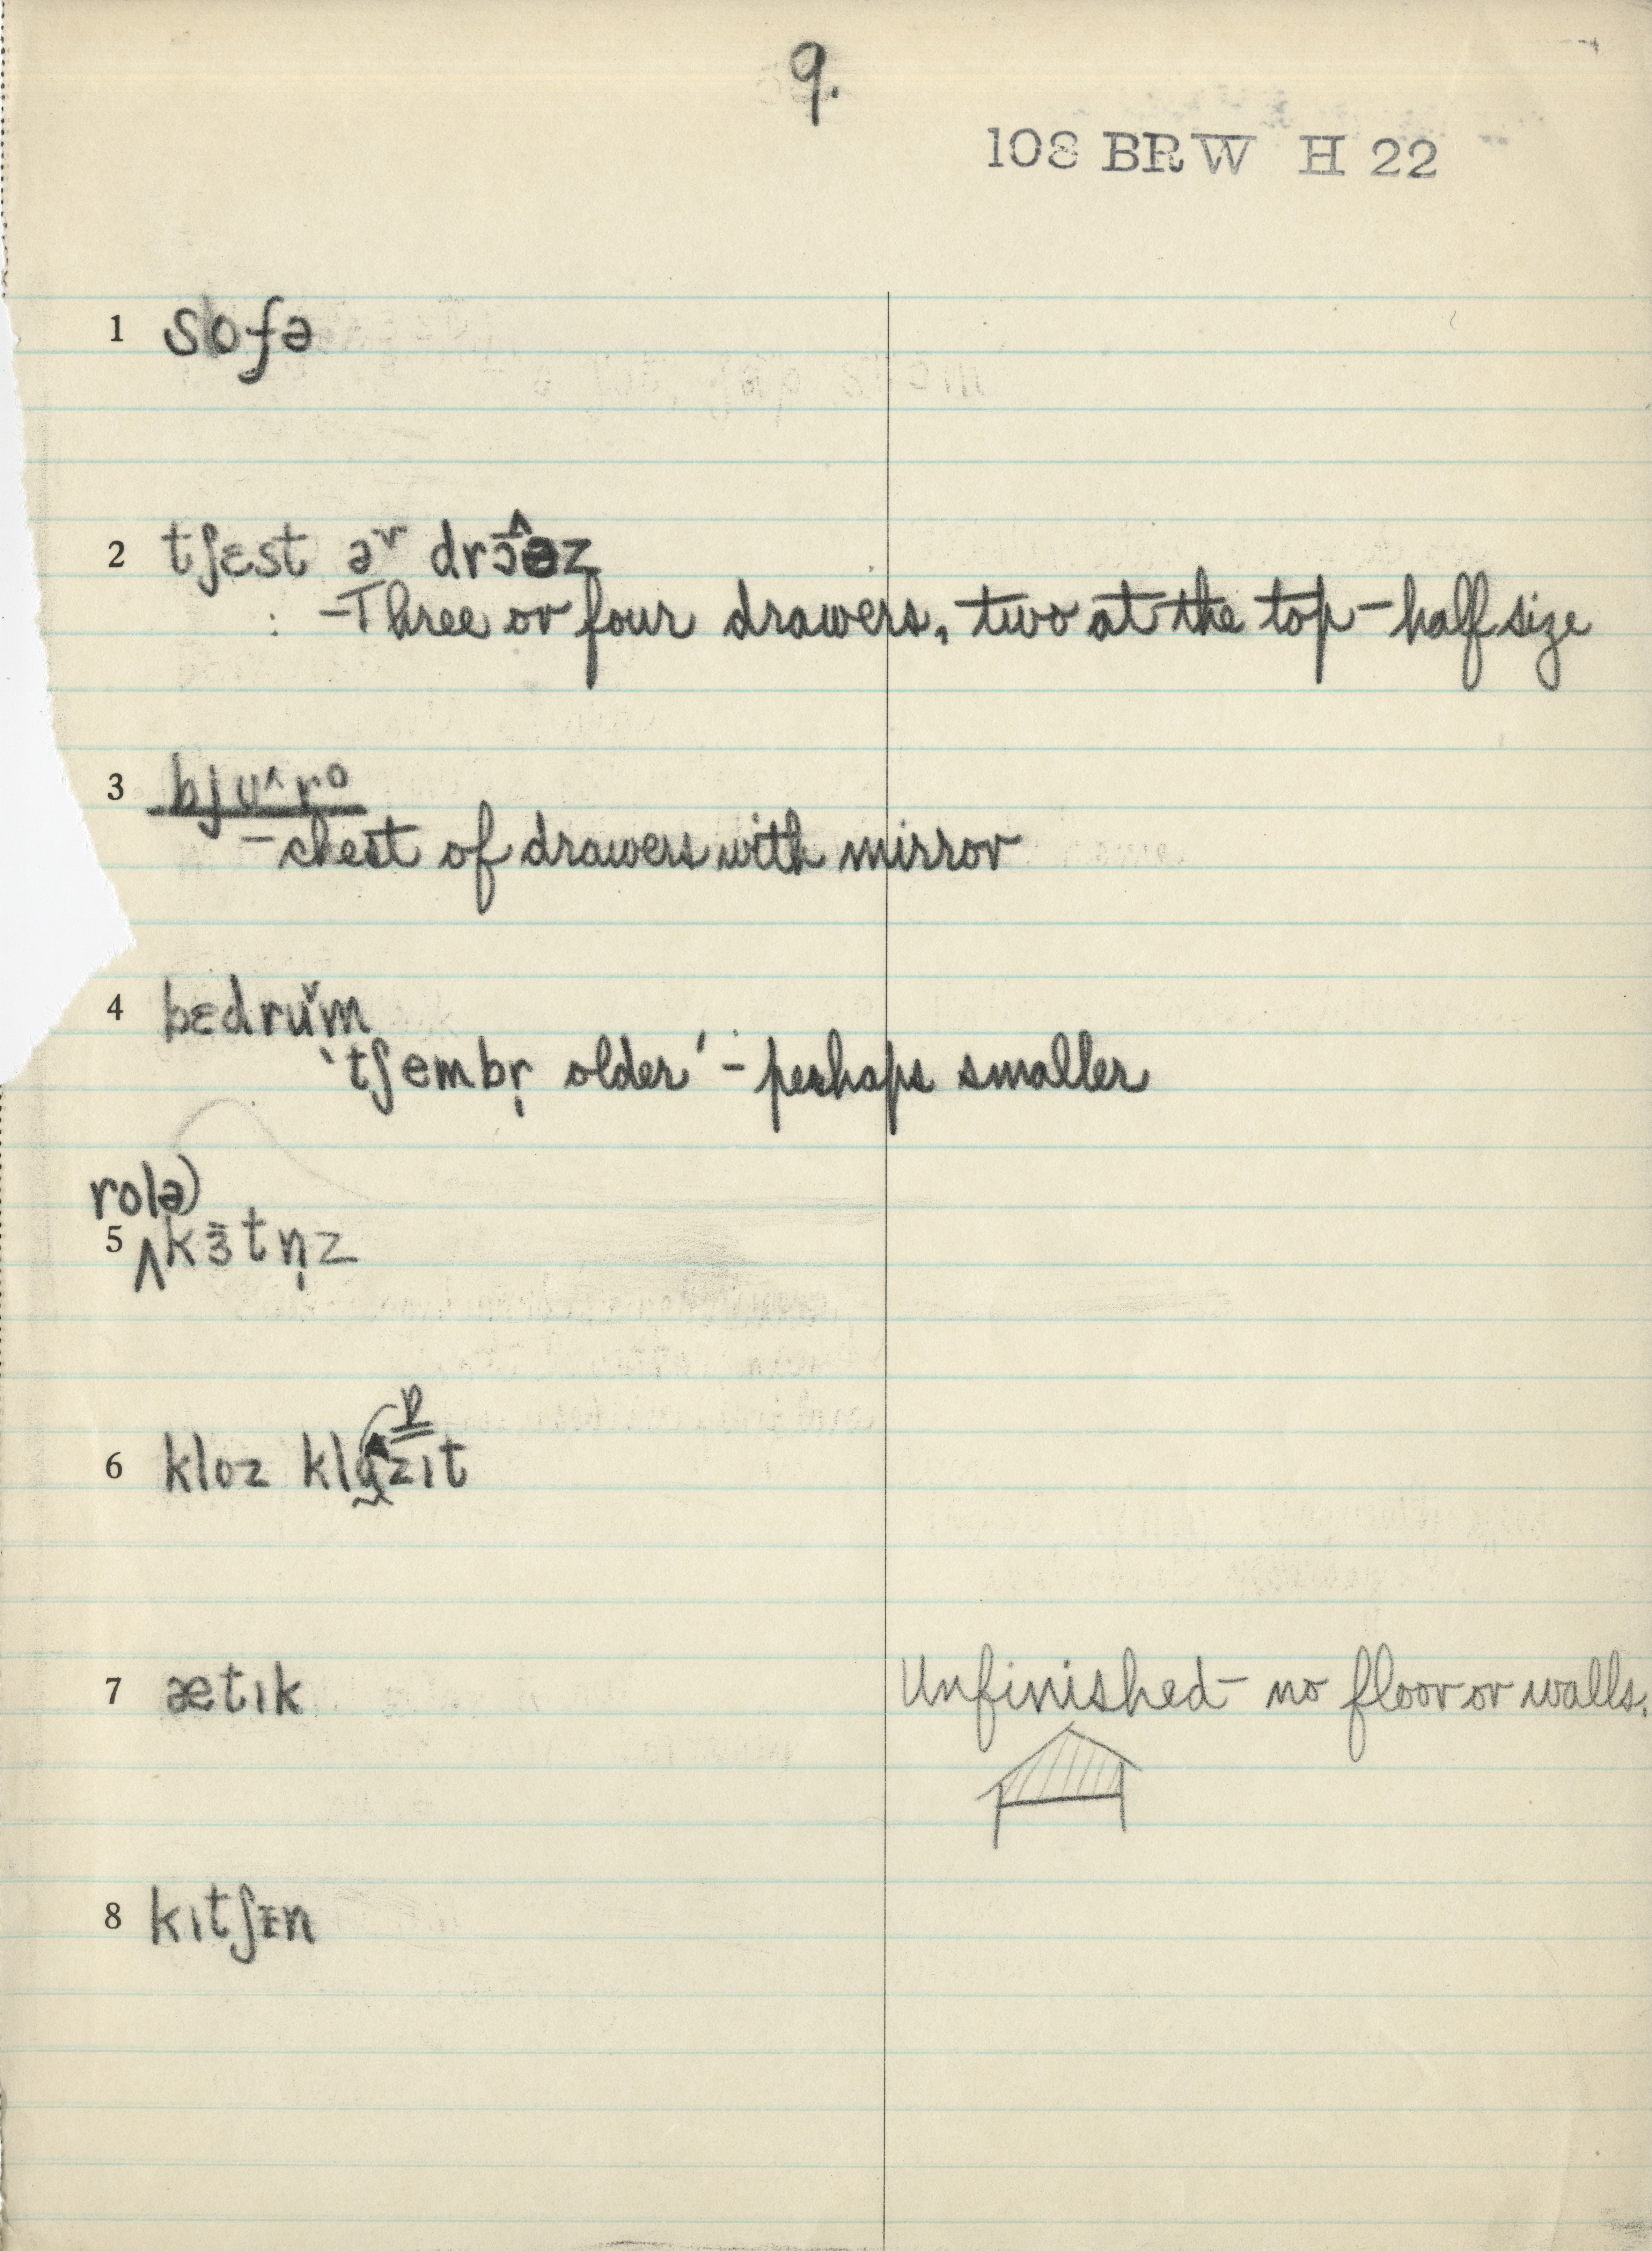 9.
108 BRW H 22
1 sofə
2 tʃɛst əʳ drɔ̂əz
—Three or four drawers, two at the top — half size
3 bju^ro
— chest of drawers with mirror
4 bɛdrǔm
'tʃembr̩ older' — perhaps smaller
rolə)
5 ^kɜ̄tn̩z
6 kloz klɒzɪt
7 ætɪk Unfinished — no floor or walls.
8 kɪtʃɪn